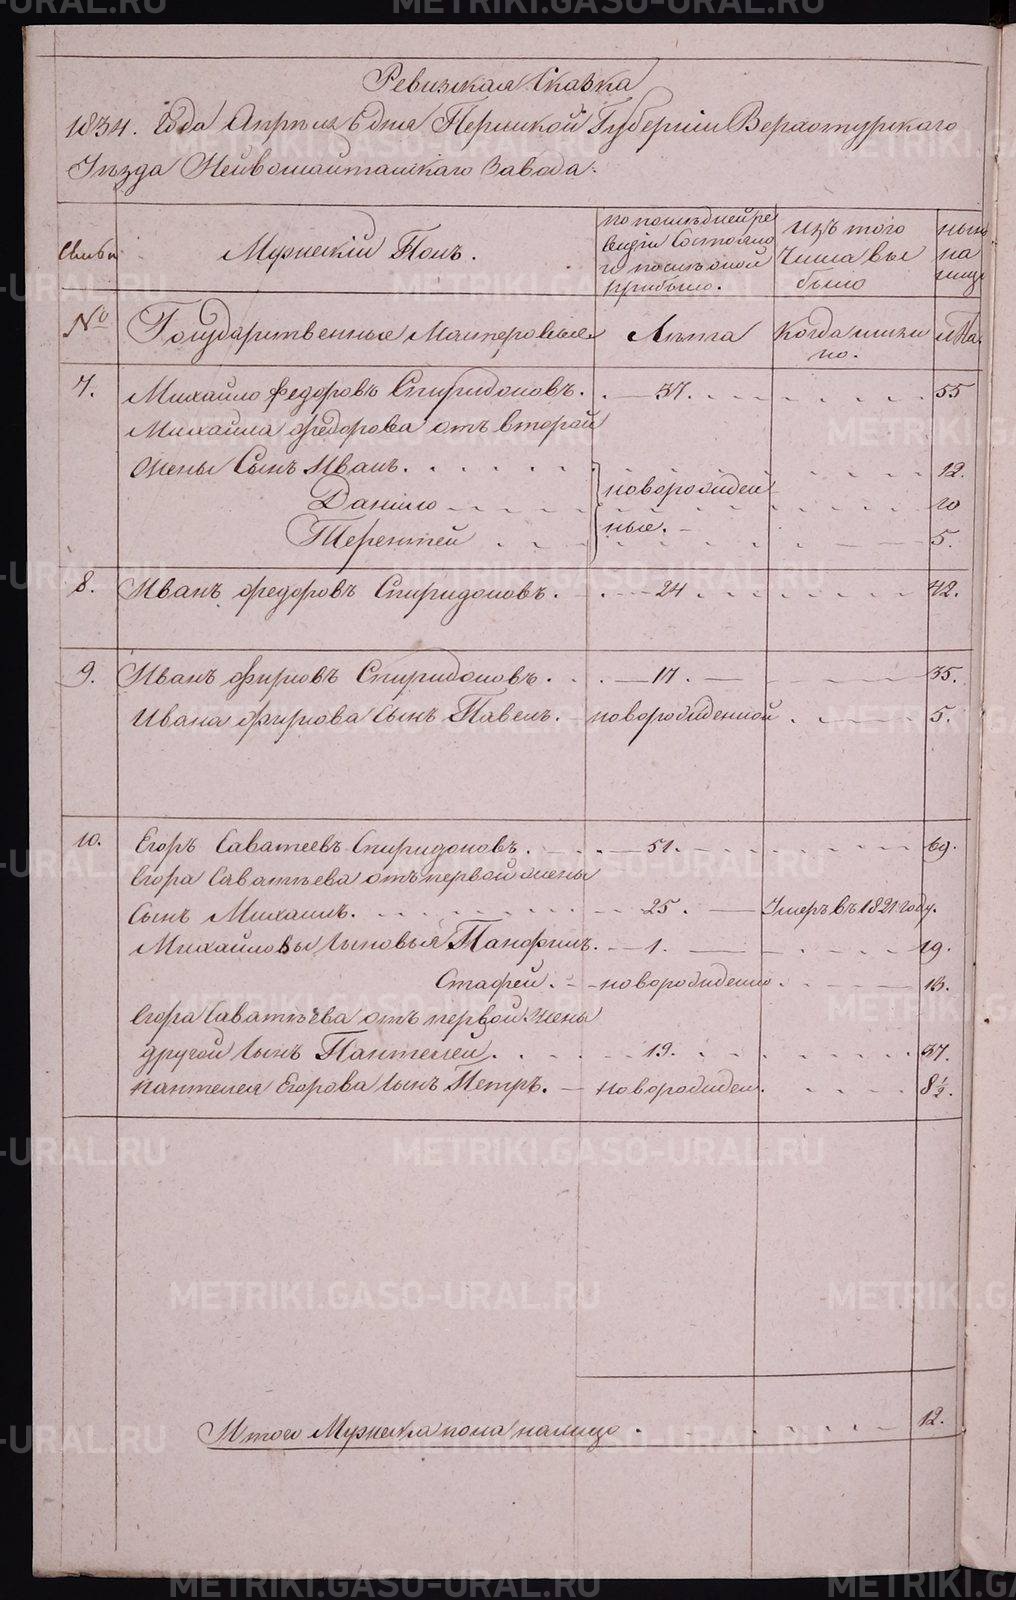 Ревизская Сказка
1834. Года Апреля 6 дня Пермской Губернии Верхотурского
Уезда Нейвошайтанскаго Завода.
Семьи
Мужеский Полъ.
по последней ре
визiи состояло
и после оной
прибыло.
Изъ того
числа вы
было
ныне
на
лице
№
Государственные Мастеровые
Лета
Когда имян
но.
Лѣта.
7.
Михайло Федоровъ Спиридоновъ. 37. 55
Михаила Федорова отъ второй
жены Сынъ Иванъ. новорожден 12.
Данило ные. 10
Терентей 5.
8. Иванъ Федоровъ Спиридоновъ. 24 42.
9. Иванъ Фирсовъ Спиридоновъ. 17. 35.
Ивана Фирсова Сынъ Павелъ. новорожденной 5.
10. Егоръ Саватеевъ Спиридоновъ. 51. 69.
Егора Саватеева отъ первой жены
Сынъ Михаилъ. 25. Умеръ въ 1821 году.
Михайловы сыновья Панфилъ. 1. 19.
Стафей. новорожденно 13.
Егора Саватеева отъ первой жены
другой сынъ Пантелей. 19. 37.
Пантелея Егорова сынъ Петръ. новорожден. 8½.
Итого Мужеска пола налицо 12.
METRIKI.GASO-URAL.RU